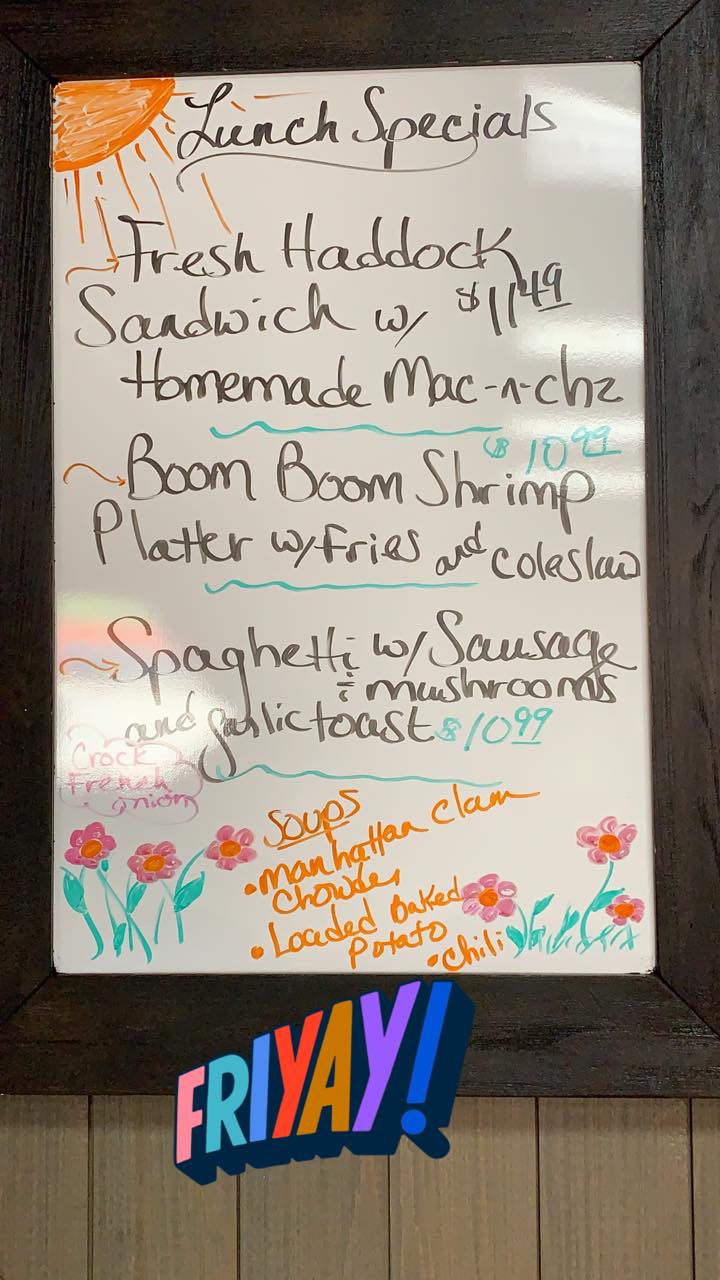 Lunch Specials
Fresh Haddock
Sandwich w/ $11 49
Homemade Mac-n-chz
$10 99
Boom Boom Shrimp
Platter w/Fries and coleslaw
Spaghetti w/Sausage
& mushrooms
and garlic toast $10 99
Crock
French
onion
Soups
• Manhattan Clam
Chowder
• Loaded Baked
Potato
• Chili
FRIYAY!